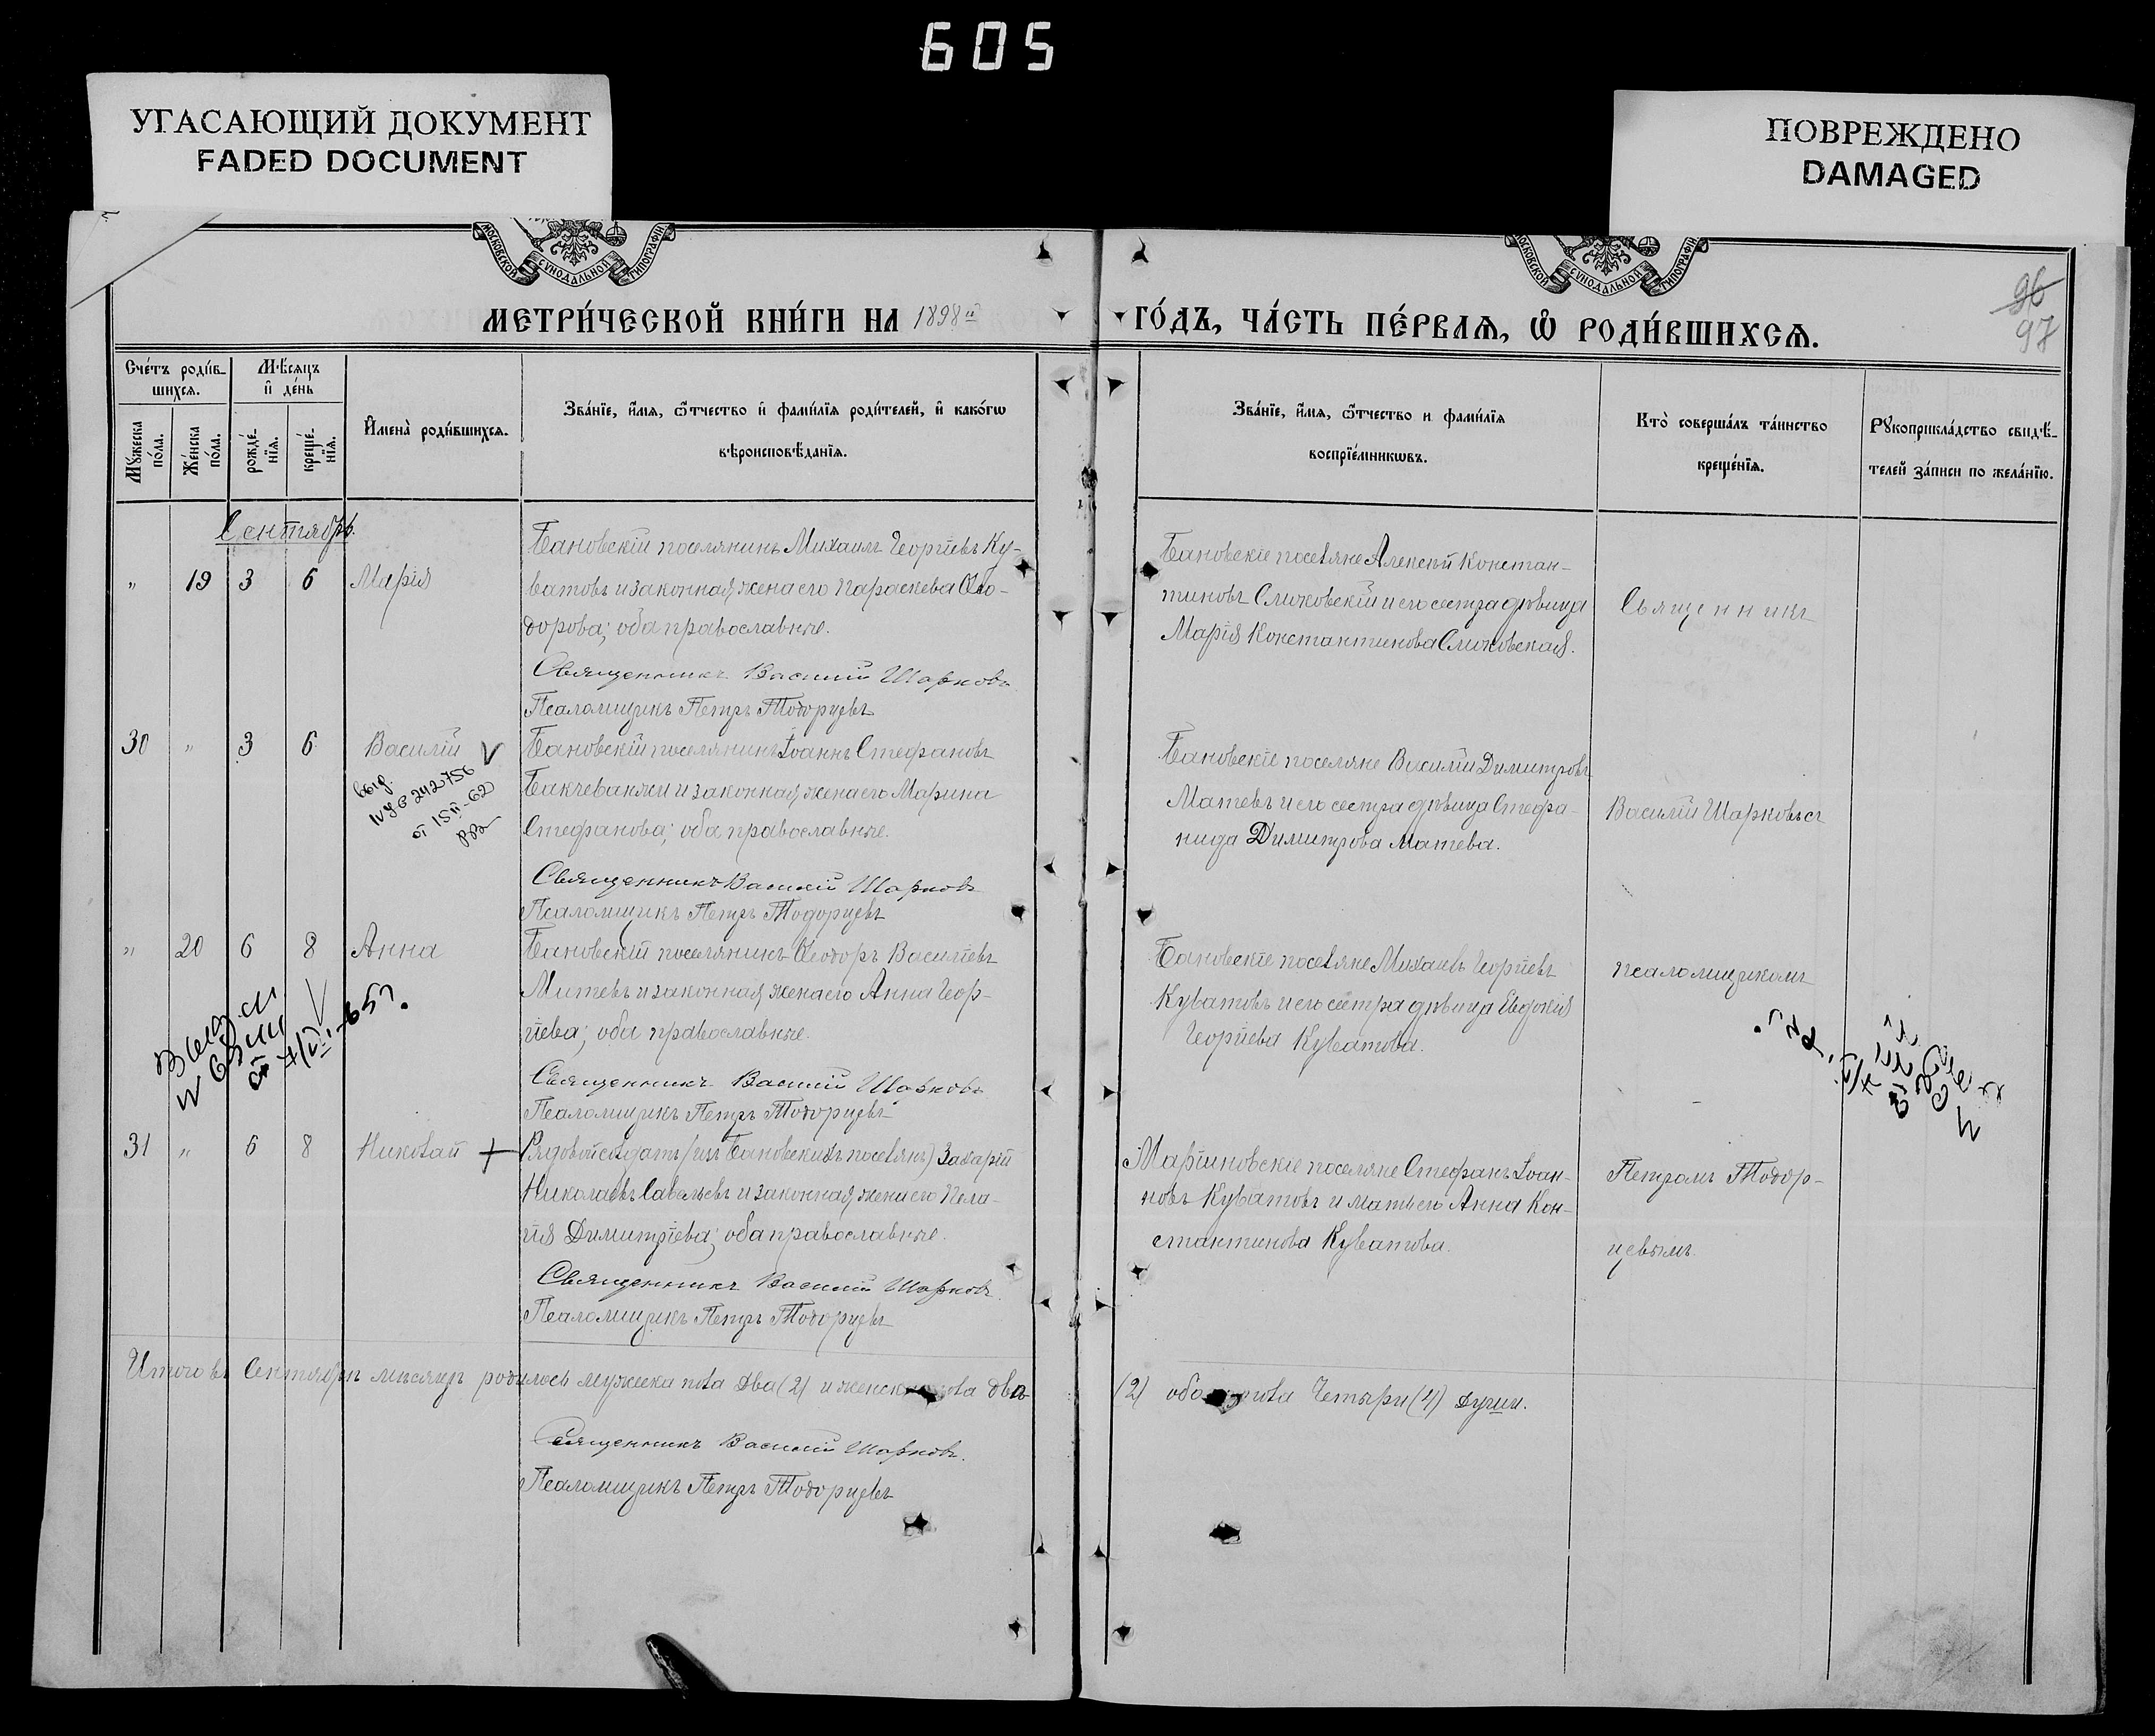 605
УГАСАЮЩИЙ ДОКУМЕНТ
FADED DOCUMENT
ПОВРЕЖДЕНО
DAMAGED
МОСКОВСКОЙ СѴНОДАЛЬНОЙ ТИПОГРАФІИ
МОСКОВСКОЙ СѴНОДАЛЬНОЙ ТИПОГРАФІИ
96
97
МЕТРИ́ЧЕСКОЙ КНИ́ГИ НА 1898й
ГО́ДЪ, ЧА́СТЬ ПЕ́РВАѦ, Ѡ҆ РОДИ́ВШИХСѦ.
Сче́тъ роди́в-
шихсѧ.
Мꙋ́жеска по́ла.
Же́нска по́ла.
Мѣ́сѧцъ
и҆ де́нь
рожде́нїѧ.
креще́нїѧ.
И҆мена̀ роди́вшихсѧ.
Зва́нїе, и҆́мѧ, ѻ҆́тчество и҆ фами́лїѧ роди́телей, и҆ како́гѡ
вѣроисповѣ́данїѧ.
Зва́нїе, и҆́мѧ, ѻ҆́тчество и фами́лїѧ
воспрїе́мникѡвъ.
Кто̀ соверша́лъ та́инство
креще́нїѧ.
Рꙋкоприкла́дство свидѣ́-
телей за́писи по жела́нїю.
Сентябрь.
" 19 3 6 Марія
Бановскій поселянинъ Михаилъ Георгіевъ Ку-
ватовъ и законная жена его Параскева Ѳео-
дорова; оба православные.
Священникъ Василій Шарковъ
Псаломщикъ Петръ Тодорцевъ
Бановскіе поселяне Алексѣй Констан-
тиновъ Слижовскій и его сестра дѣвица
Марія Константинова Слижовская.
Священникъ
30 " 3 6 Василій V
Бановскій поселянинъ Іоаннъ Стефановъ
Бакчеванжи и законная жена его Марина
Стефанова; оба православные.
Священникъ Василій Шарковъ
Псаломщикъ Петръ Тодорцевъ
выд.
242756
от 15 II-62
Бановскіе поселяне Василій Димитровъ
Матевъ и его сестра дѣвица Стефа-
нида Димитрова Матева.
Василій Шарковъ съ
" 20 6 8 Анна
Бановскій поселянинъ Ѳеодоръ Василіевъ
Митевъ и законная жена его Анна Геор-
гіева; оба православные.
Священникъ Василій Шарковъ
Псаломщикъ Петръ Тодорцевъ
Бановскіе поселяне Михаилъ Георгіевъ
Куватовъ и его сестра дѣвица Евдокія
Георгіева Куватова.
псаломщикомъ
31 " 6 8 Николай +
Рядовой солдатъ (изъ Бановскихъ поселянъ) Захарій
Николаевъ Савельевъ и законная жена его Пела-
гія Димитріева; оба православные.
Священникъ Василій Шарковъ.
Псаломщикъ Петръ Тодорцевъ
Маріиновскіе поселяне Стефанъ Іоан-
новъ Куватовъ и мать его Анна Кон-
стантинова Куватова.
Петромъ Тодор-
цевымъ.
Итого въ Сентябрѣ мѣсяцѣ родилось мужеска пола два (2) и женска пола два
(2) обоего пола Четыри (4) души.
Священникъ Василій Шарковъ.
Псаломщикъ Петръ Тодорцевъ